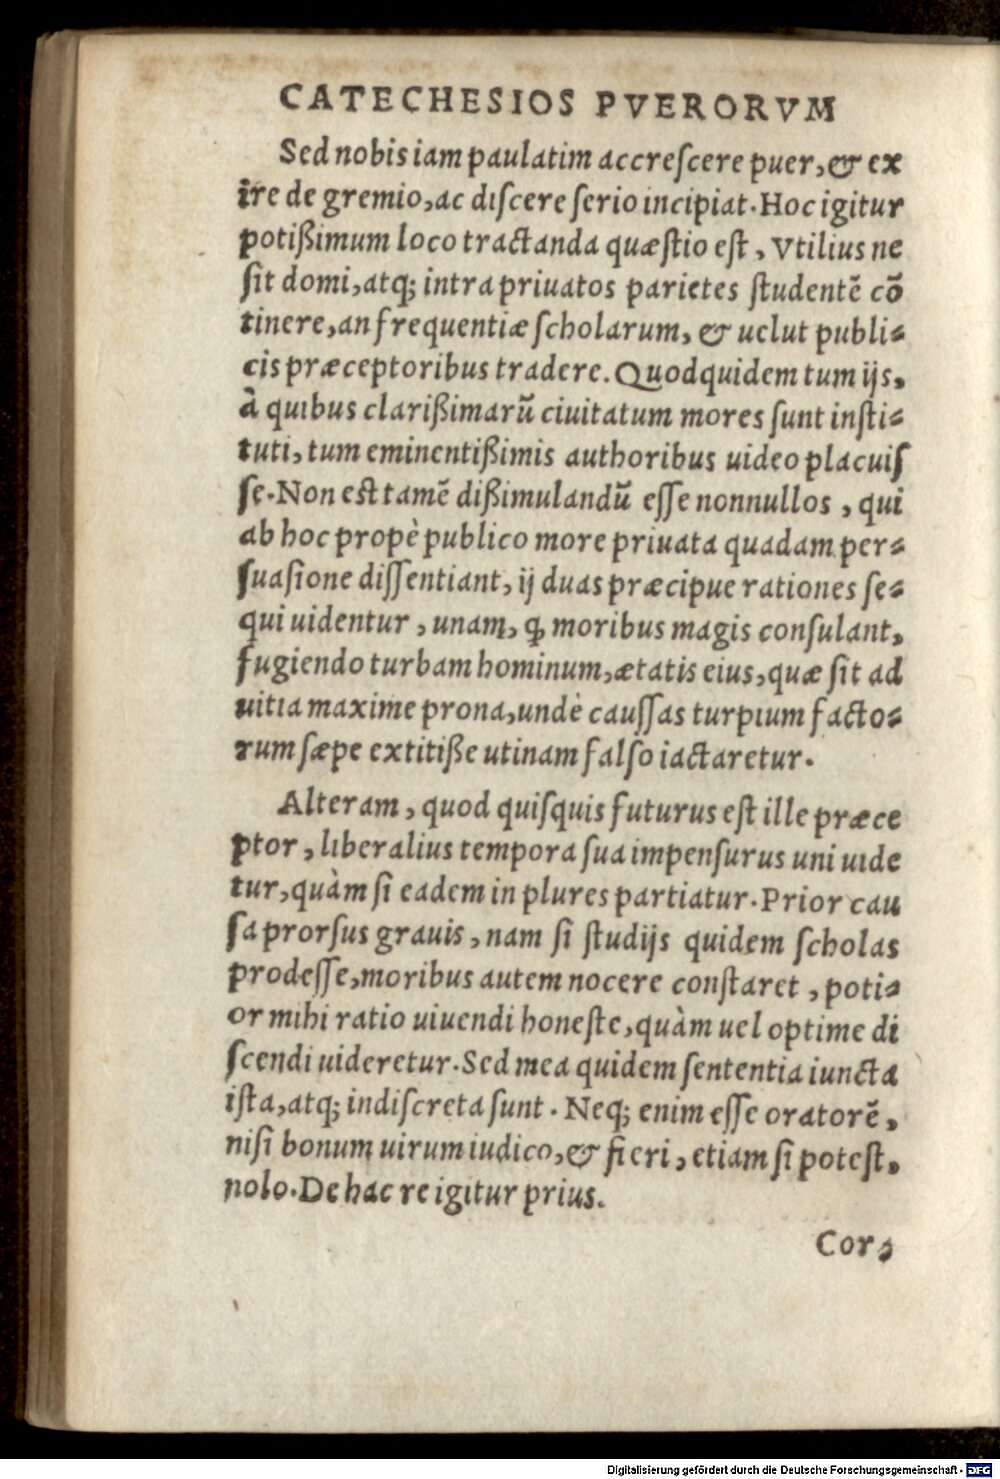 CATECHESIOS PVERORVM
Sed nobis iam paulatim accreſcere puer, & ex
ire de gremio, ac diſcere ſerio incipiat. Hoc igitur
potißimum loco tractanda quæſtio eſt, Vtilius ne
ſit domi, atq; intra priuatos parietes ſtudentē cō
tinere, an frequentiæ ſcholarum, & uelut publi⸗
cis præceptoribus tradere. Quod quidem tum ijs,
à quibus clarißimarū ciuitatum mores ſunt inſti⸗
tuti, tum eminentißimis authoribus uideo placuiſ
ſe. Non est tamē dißimulandū eſſe nonnullos, qui
ab hoc propè publico more priuata quadam per⸗
ſuaſione diſſentiant, ij duas præcipue rationes ſe⸗
qui uidentur, unam, ꝙ moribus magis conſulant,
fugiendo turbam hominum, ætatis eius, quæ ſit ad
uitia maxime prona, undè cauſſas turpium facto⸗
rum ſæpe extitiße utinam falſo iactaretur.
Alteram, quod quiſquis futurus eſt ille præce
ptor, liberalius tempora ſua impenſurus uni uide
tur, quàm ſi eadem in plures partiatur. Prior cau
ſa prorſus grauis, nam ſi ſtudijs quidem ſcholas
prodeſſe, moribus autem nocere conſtaret, poti⸗
or mihi ratio uiuendi honeſte, quàm uel optime di
ſcendi uideretur. Sed mea quidem ſententia iuncta
iſta, atq; indiſcreta ſunt. Neq; enim eſſe oratorē,
niſi bonum uirum iudico, & fieri, etiam ſi poteſt,
nolo. De hac re igitur prius.
Cor⸗
Digitalisierung gefördert durch die Deutsche Forschungsgemeinschaft - DFG